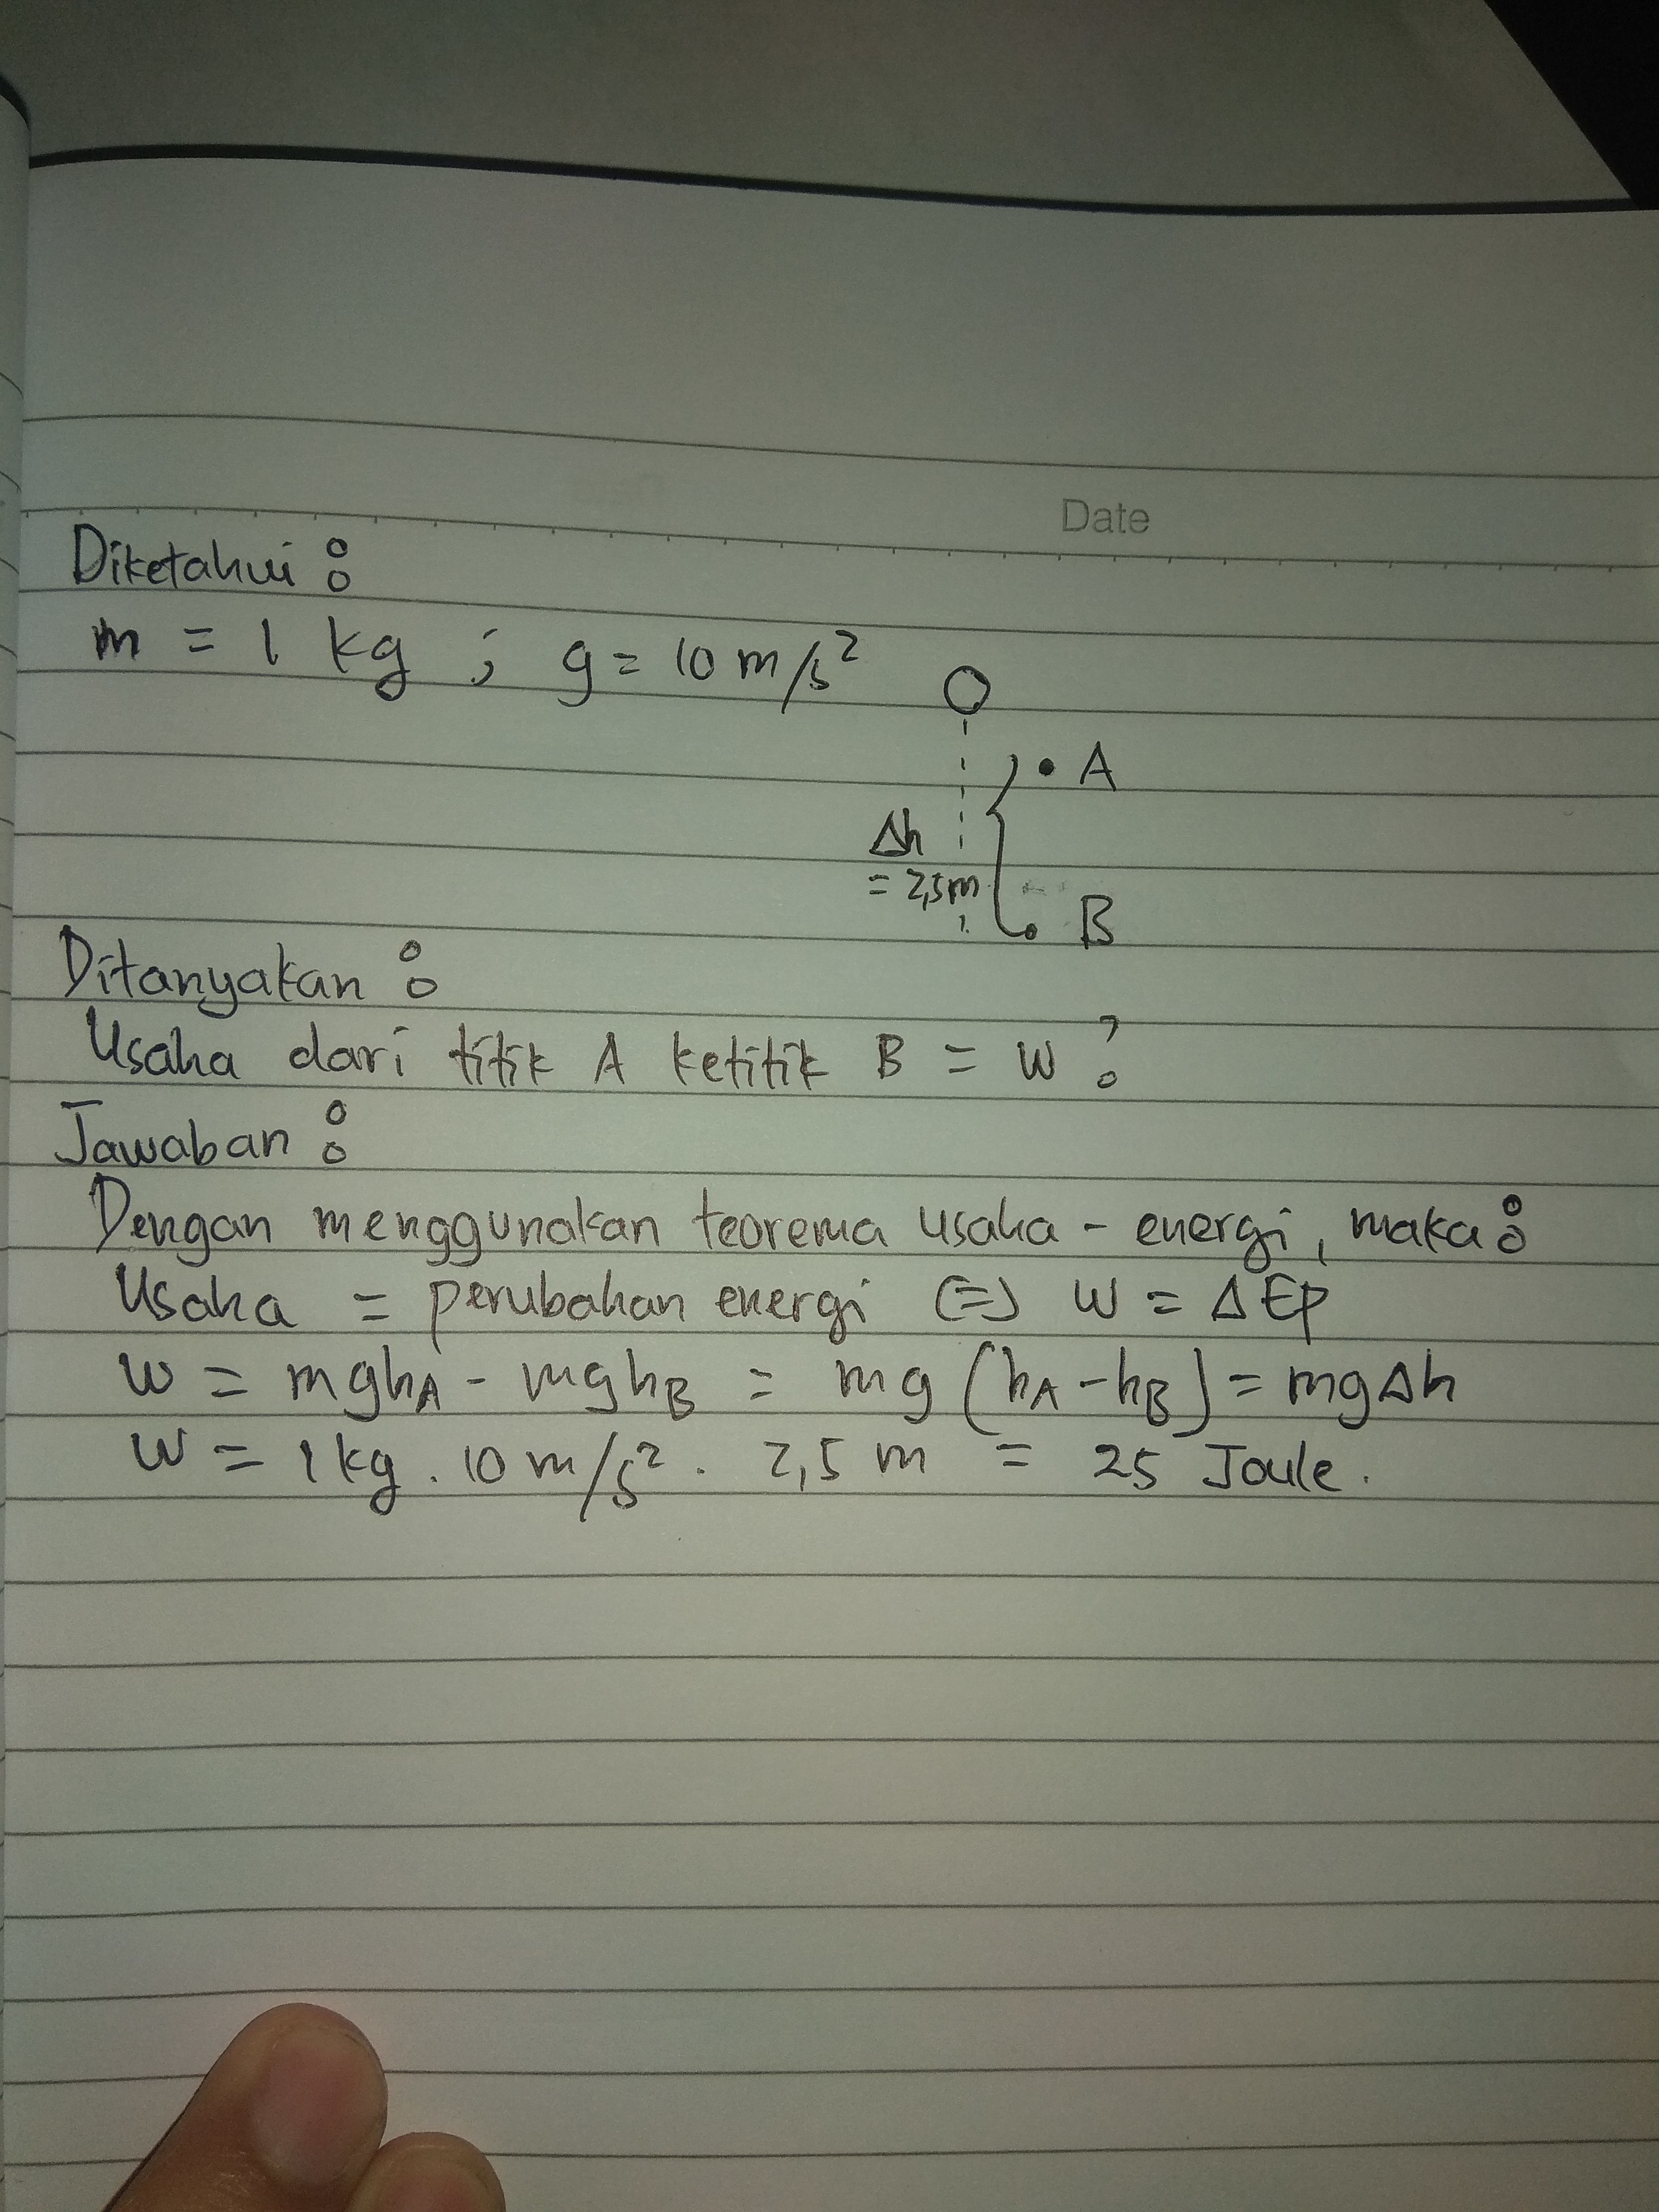 Date
Diketahui :
m = 1 kg ; g = 10 m/s²
A
Δh
= 2,5m
B
Ditanyakan :
Usaha dari titik A ketitik B = W ?
Jawaban :
Dengan menggunakan teorema usaha - energi, maka :
Usaha = perubahan energi (=) W = ΔEp
W = mghA - mghB = mg (hA - hB) = mgΔh
W = 1 kg . 10 m/s² . 2,5 m = 25 Joule.